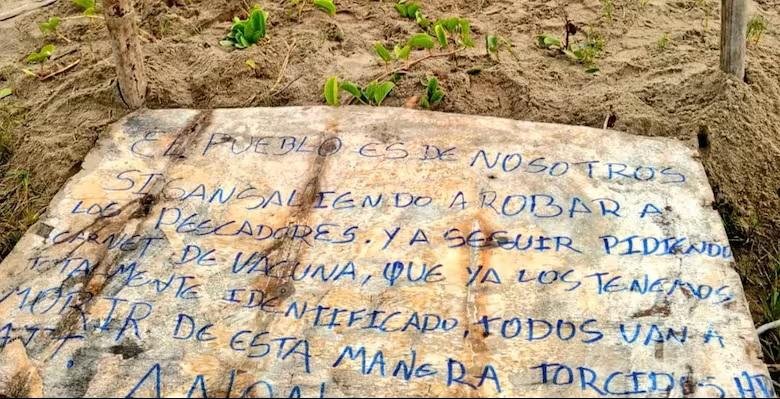 EL PUEBLO ES DE NOSOTROS
SIGAN SALIENDO A ROBAR A
LOS PESCADORES. Y A SEGUIR PIDIENDO
CARNET DE VACUNA, QUE YA LOS TENEMOS
TOTALMENTE IDENTIFICADO, TODOS VAN A
MORIR DE ESTA MANERA TORCIDOS HP
ATT.